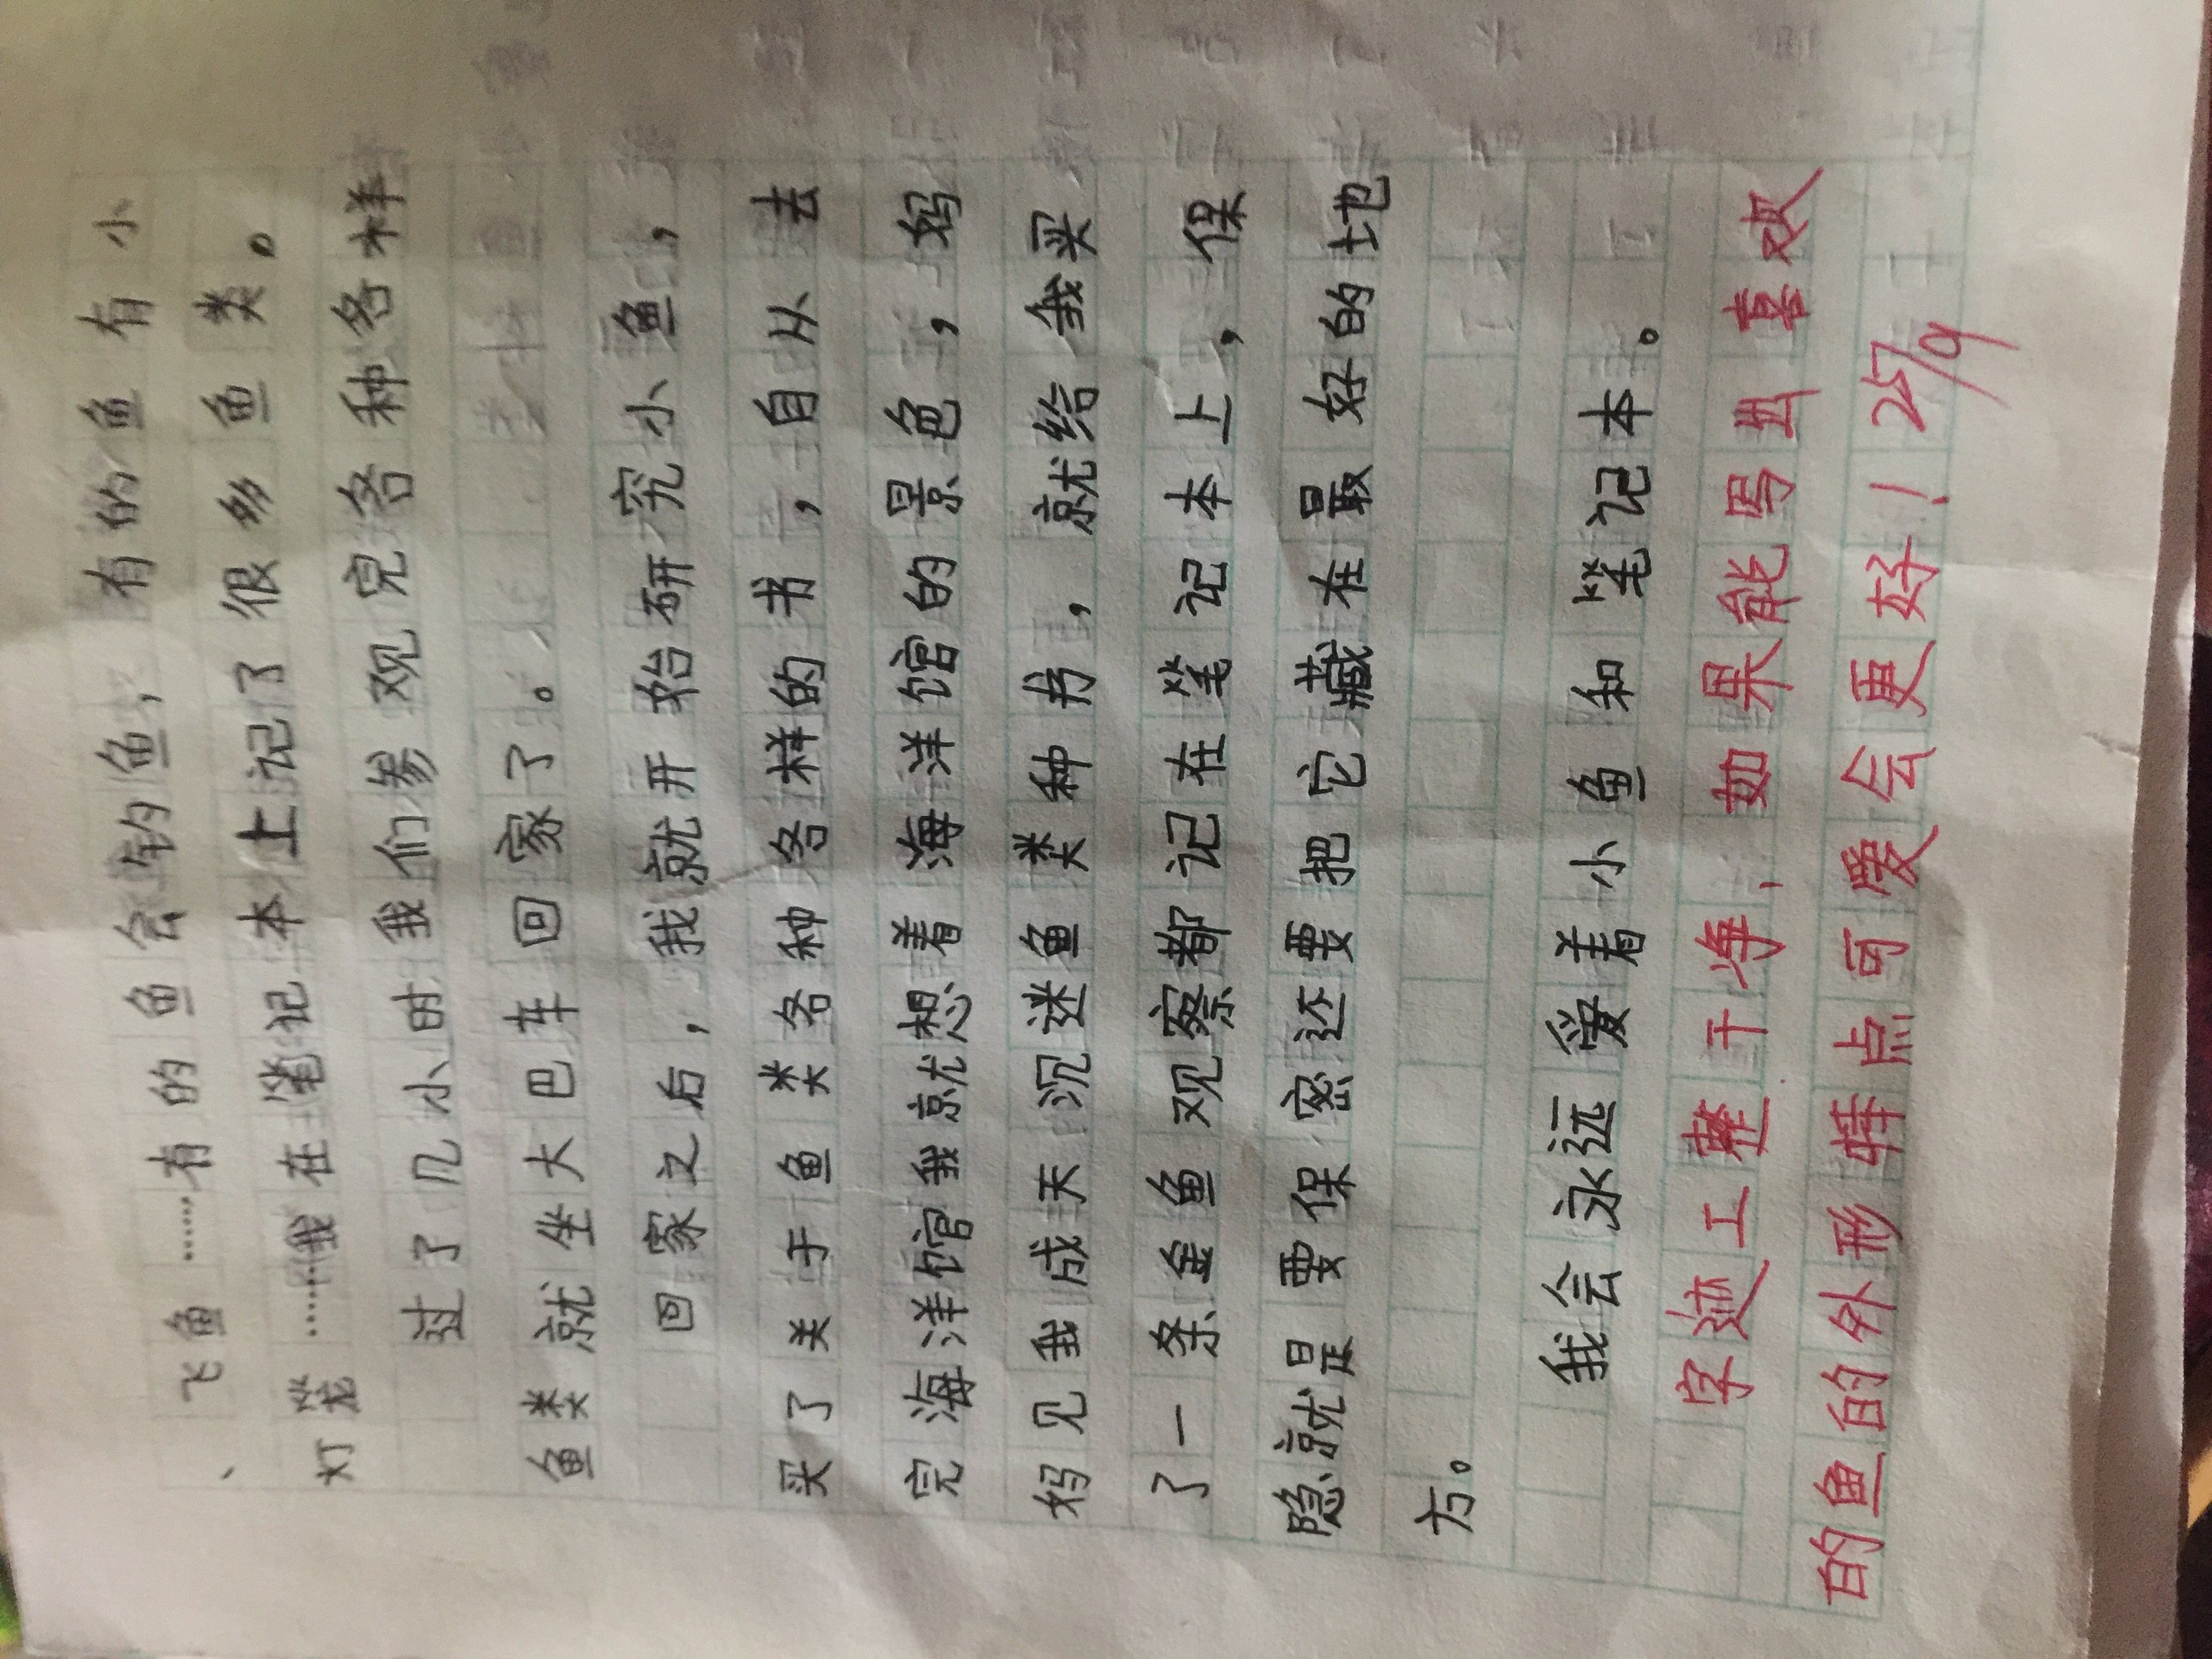 、飞鱼……有的鱼会钓鱼,有的鱼有小
灯笼……我在笔记本上记了很多鱼类。
过了几小时我们参观完各种各样
鱼类就坐大巴车回家了。
回家之后,我就开始研究小鱼,
买了关于鱼类各种各样的书,自从去
完海洋馆我就想着海洋馆的景色,妈
妈见我成天沉迷鱼类种书,就给我买
了一条金鱼观察都记在笔记本上,保
隐就是要保密还要把它藏在最好的地
方。
我会永远爱着小鱼和笔记本。
字迹工整干净,如果能写出喜欢
的鱼的外形特点可爱会更好!25/9